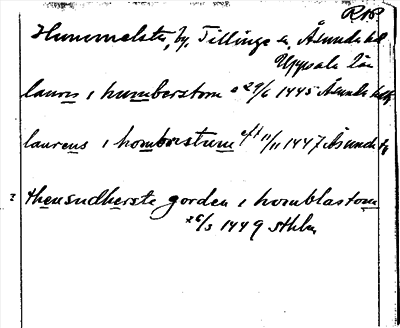 RAP
Hummelsta, by, Tillinge sn, Åsunda hd
Uppsala län
lauris i humberstom o 29/6 1445 Åsunda
laurens i homborstum eft 11/11 1447 Åsunda
2 then sudherste gorden i homblastom
26/3 1449 Sthlm